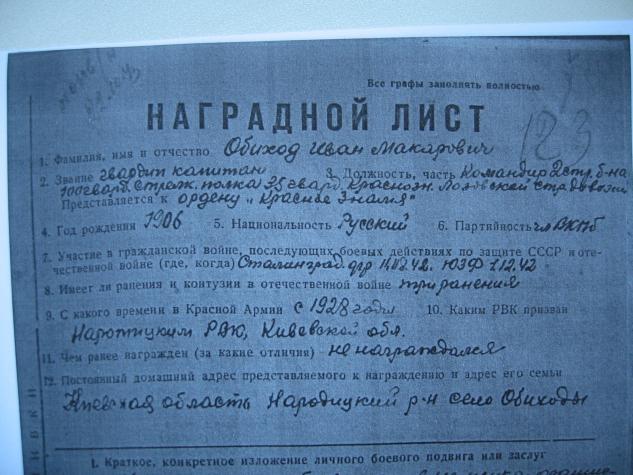 Все графы заполнять полностью
123
НАГРАДНОЙ ЛИСТ
1. Фамилия, имя и отчество Обиход Иван Макарович
2. Звание гвардии капитан 3. Должность, часть Командир 2 стр. б-на
100 гвард. стрелк. полка 35 гвард. Краснозн. Лозовской стр. дивизии
Представляется к ордену „Красное Знамя"
4. Год рождения 1906 5. Национальность Русский 6. Партийность чл ВКПб
7. Участие в гражданской войне, последующих боевых действиях по защите СССР и оте-
чественной войне (где, когда) Сталинград. ЮЗФ 1.12.42
8. Имеет ли ранения и контузии в отечественной войне три ранения
9. С какого времени в Красной Армии с 1928 года 10. Каким РВК призван
РВК, Киевской обл.
11. Чем ранее награжден (за какие отличия) не награждался
12. Постоянный домашний адрес представляемого к награждению и адрес его семьи
Киевская область Народицкий р-н село Обиходы
I. Краткое, конкретное изложение личного боевого подвига или заслуг